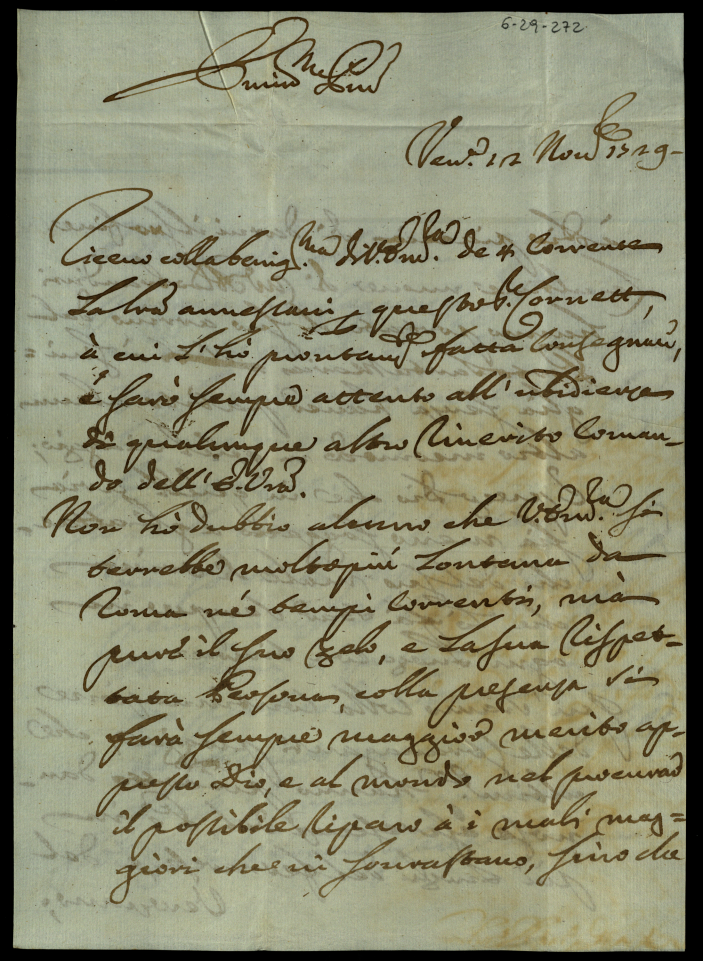 6-29-272
Em.mo
Ven.a 12 Nov.e 1729-
Ricevo colla benig.ma di V. Em.za de 4 corrente
La lra annessami questo Cornett,
à cui l'hò prontam.te fatta consegnare,
e sarò sempre attento all'ubidienza
di qualunque altro riverito coman-
do dell'E. Vra.
Non hò dubbio alcuno che V. Em.za si
terrebbe molto più Lontana da
Roma né tempi correnti, mà
pure il suo zelo, e La sua rispet-
tata Persona, colla presenza si
farà sempre maggiore merito ap-
presso Dio, e al mondo nel procurare
il possibile riparo à i mali mag=
giori che ni sovrastano, sino che